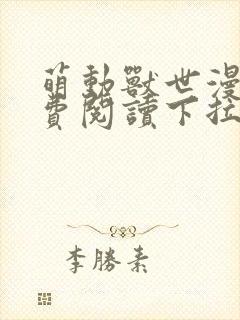 萌動獸世漫
費閱讀下拉
李勝素